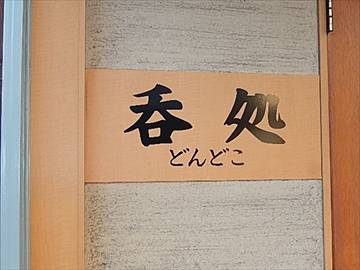 呑処
どんどこ